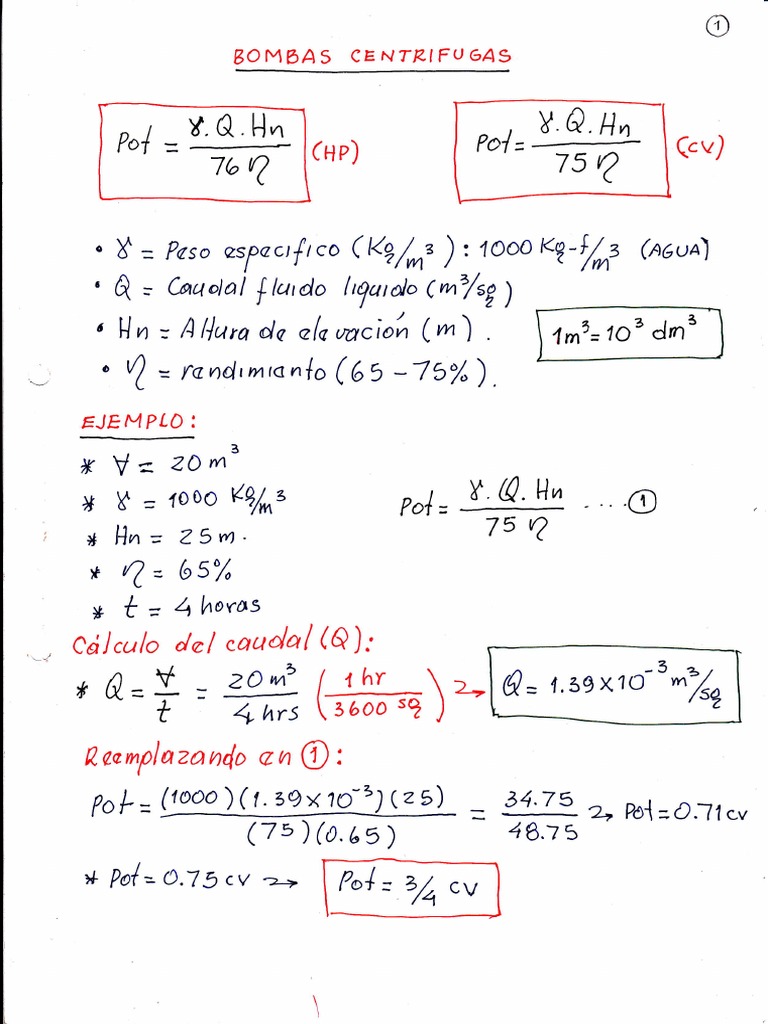 1
BOMBAS CENTRIFUGAS
Pot = γ.Q.Hn / 76 η (HP)
Pot = γ.Q.Hn / 75 η (CV)
• γ = Peso especifico (Kg/m³) : 1000 Kg-f/m³ (AGUA)
• Q = Caudal fluido liquido (m³/sg)
• Hn = Altura de elevación (m).
1m³ = 10³ dm³
• η = rendimiento (65 - 75%).
EJEMPLO:
* ∀ = 20 m³
* γ = 1000 Kg/m³
* Hn = 25 m.
* η = 65%
* t = 4 horas
Pot = γ.Q.Hn / 75 η .... 1
Cálculo del caudal (Q):
* Q = ∀/t = 20 m³ / 4 hrs (1 hr / 3600 sg) → Q = 1.39 x 10⁻³ m³/sg
Reemplazando en 1:
Pot = (1000)(1.39 x 10⁻³)(25) / (75)(0.65) = 34.75 / 48.75 → Pot = 0.71 cv
* Pot = 0.75 cv → Pot = 3/4 cv